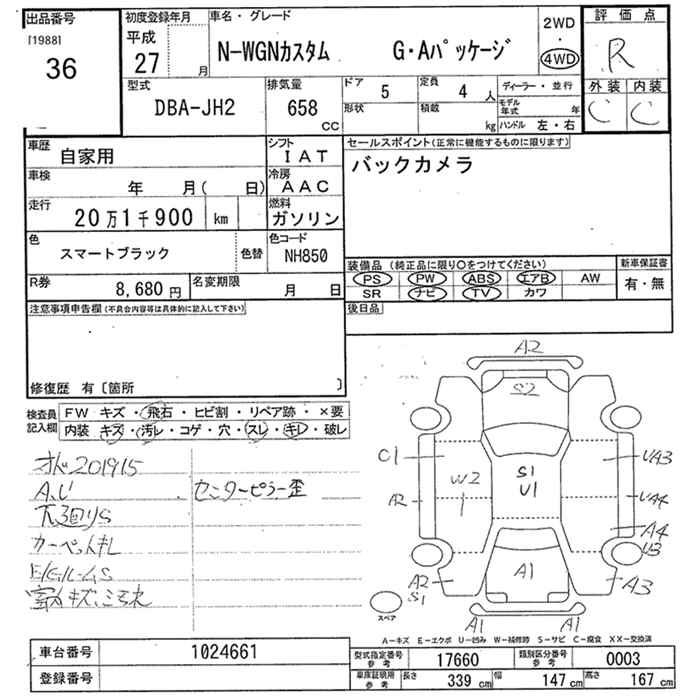 出品番号
[1988]
36
初度登録年月
平成
27 月
車名・グレード
N-WGNカスタム G・Aパッケージ
2WD
・
4WD
評価点
R
外装 内装
C C
型式
DBA-JH2
排気量
658
CC
ドア 5
定員 4 人
形状
積載 kg
ディーラー・並行
モデル年式 年
ハンドル 左・右
車歴 自家用
シフト IAT
車検 年 月( 日)
冷房 AAC
走行 20万1千900 km
燃料 ガソリン
色 スマートブラック 色替
色コード NH850
R券 8,680 円
名変期限 月 日
セールスポイント(正常に機能するものに限ります)
バックカメラ
装備品(純正品に限り○をつけてください)
PS PW ABS エアB AW
SR ナビ TV カワ
新車保証書
有・無
後日品
注意事項申告欄(不具合内容等は具体的に記入して下さい)
修復歴 有〔箇所 〕
検査員記入欄
FW キズ・飛石・ヒビ割・リペア跡・×要
内装 キズ・汚レ・コゲ・穴・スレ・キレ・破レ
オド201915
A、U
センターピラー歪
下廻りS
カーペットキレ
A2
S2
C1
W2
S1
U1
UA3
A2
UA4
A4
U3
A1
A2
S1
A3
A1 A1
スペア
A-キズ E-エクボ U-凹み W-補修跡 S-サビ C-腐食 XX-交換済
車台番号 1024661
登録番号
型式指定番号 参考 17660
類別区分番号 参考 0003
車庫証明用 参考 長さ 339 cm 幅 147 cm 高さ 167 cm